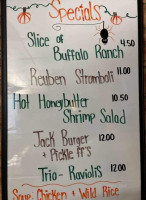 Specials
Slice of
Buffalo Ranch 4.50
Reuben Stromboli 11.00
Hot Honeybutter 10.50
Shrimp Salad
Jack Burger 12.00
+ Pickle FF's
Trio- Raviolis 12.00
Soup Chicken & Wild Rice